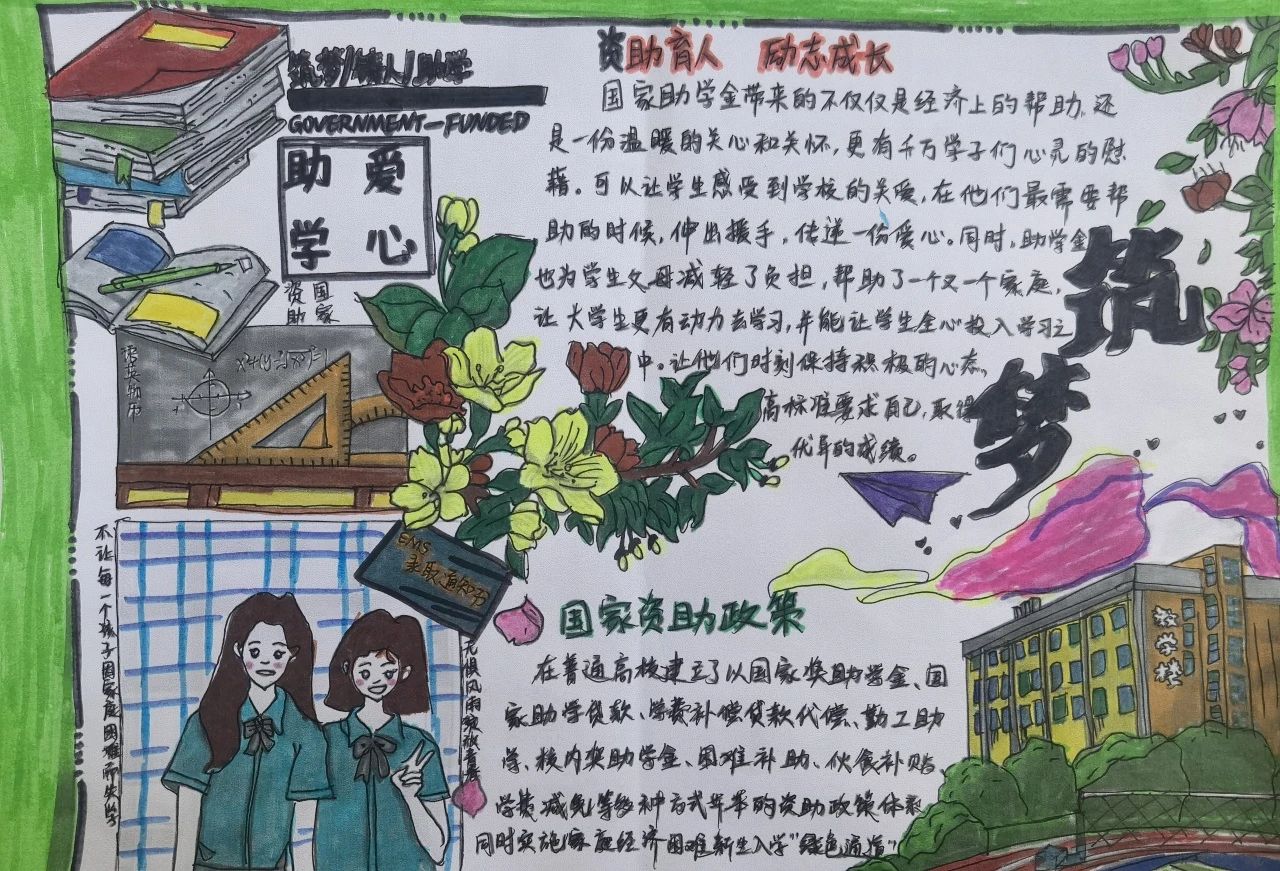 筑梦/铸人/助学
GOVERNMENT-FUNDED
助 爱
学 心
国家
资助
语英物历
EMS
录取通知书
不让每一个孩子因家庭困难而失学
无惧风雨绽放青春
资助育人 励志成长
国家助学金带来的不仅仅是经济上的帮助,还
是一份温暖的关心和关怀,更有千万学子们心灵的慰
藉。可以让学生感受到学校的关爱,在他们最需要帮
助的时候,伸出援手,传递一份爱心。同时,助学金
也为学生父母减轻了负担,帮助了一个又一个家庭,
让大学生更有动力去学习,并能让学生全心投入学习之
中。让他们时刻保持积极的心态。
高标准要求自己,取得
优异的成绩。
筑
梦
国家资助政策
在普通高校建立了以国家奖助学金、国
家助学贷款、学费补偿贷款代偿、勤工助
学、校内奖助学金、困难补助、伙食补贴、
学费减免等多种方式并举的资助政策体系
同时实施家庭经济困难新生入学"绿色通道"
教学楼